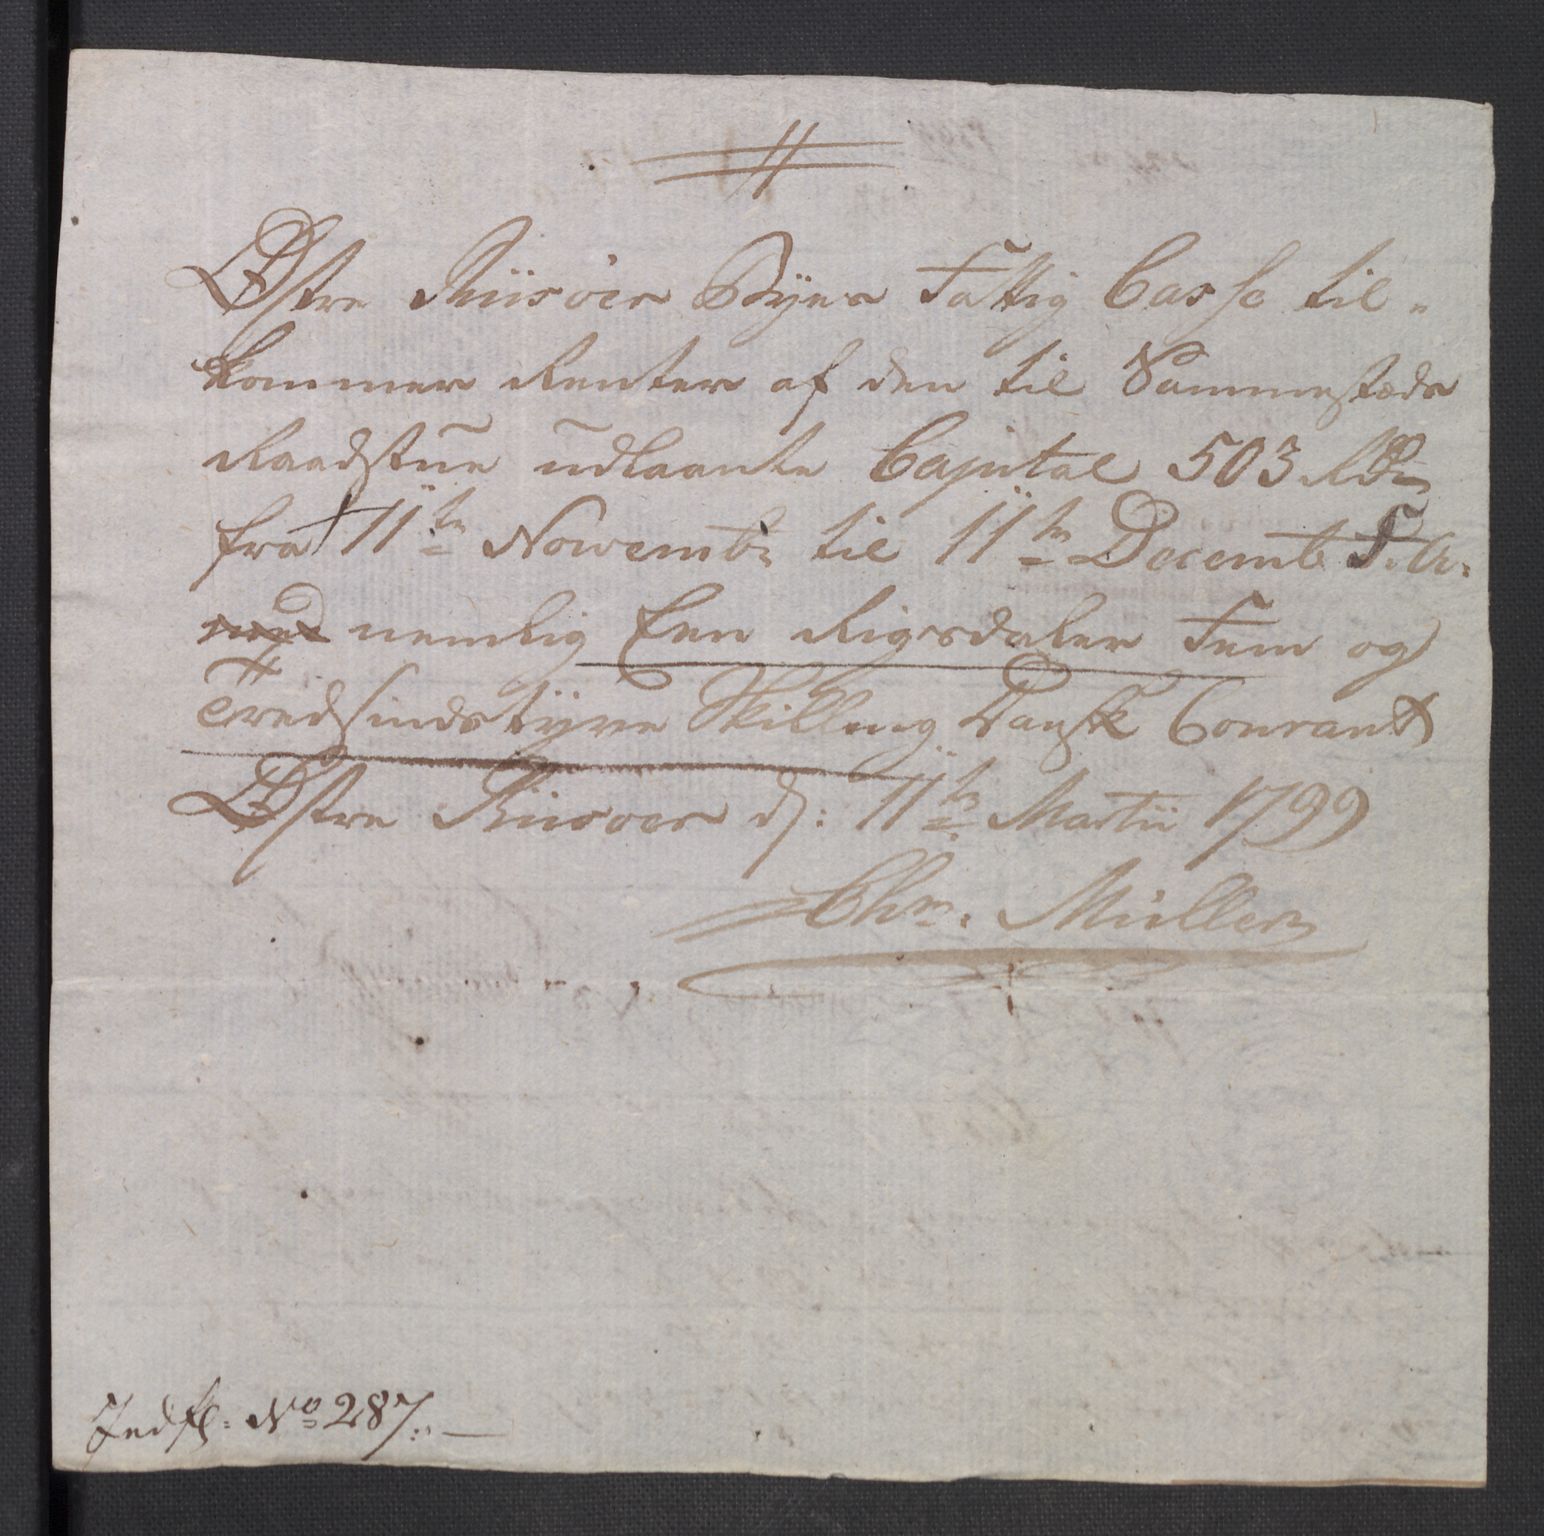 Østre Riisøer Byes Fattig Casse til-
kommer Renter af den til Sammestæds
Raadstue udlaante Capital 503 Rd
fra 11te Novembr til 11te Decemb: F. A.
nemlig Een Rigsdaler Fem og
Tredsindstÿve Skilling Dansk Courant
Østre Riisøer d: 11te Martii 1799
Chr. Müller
No 287.